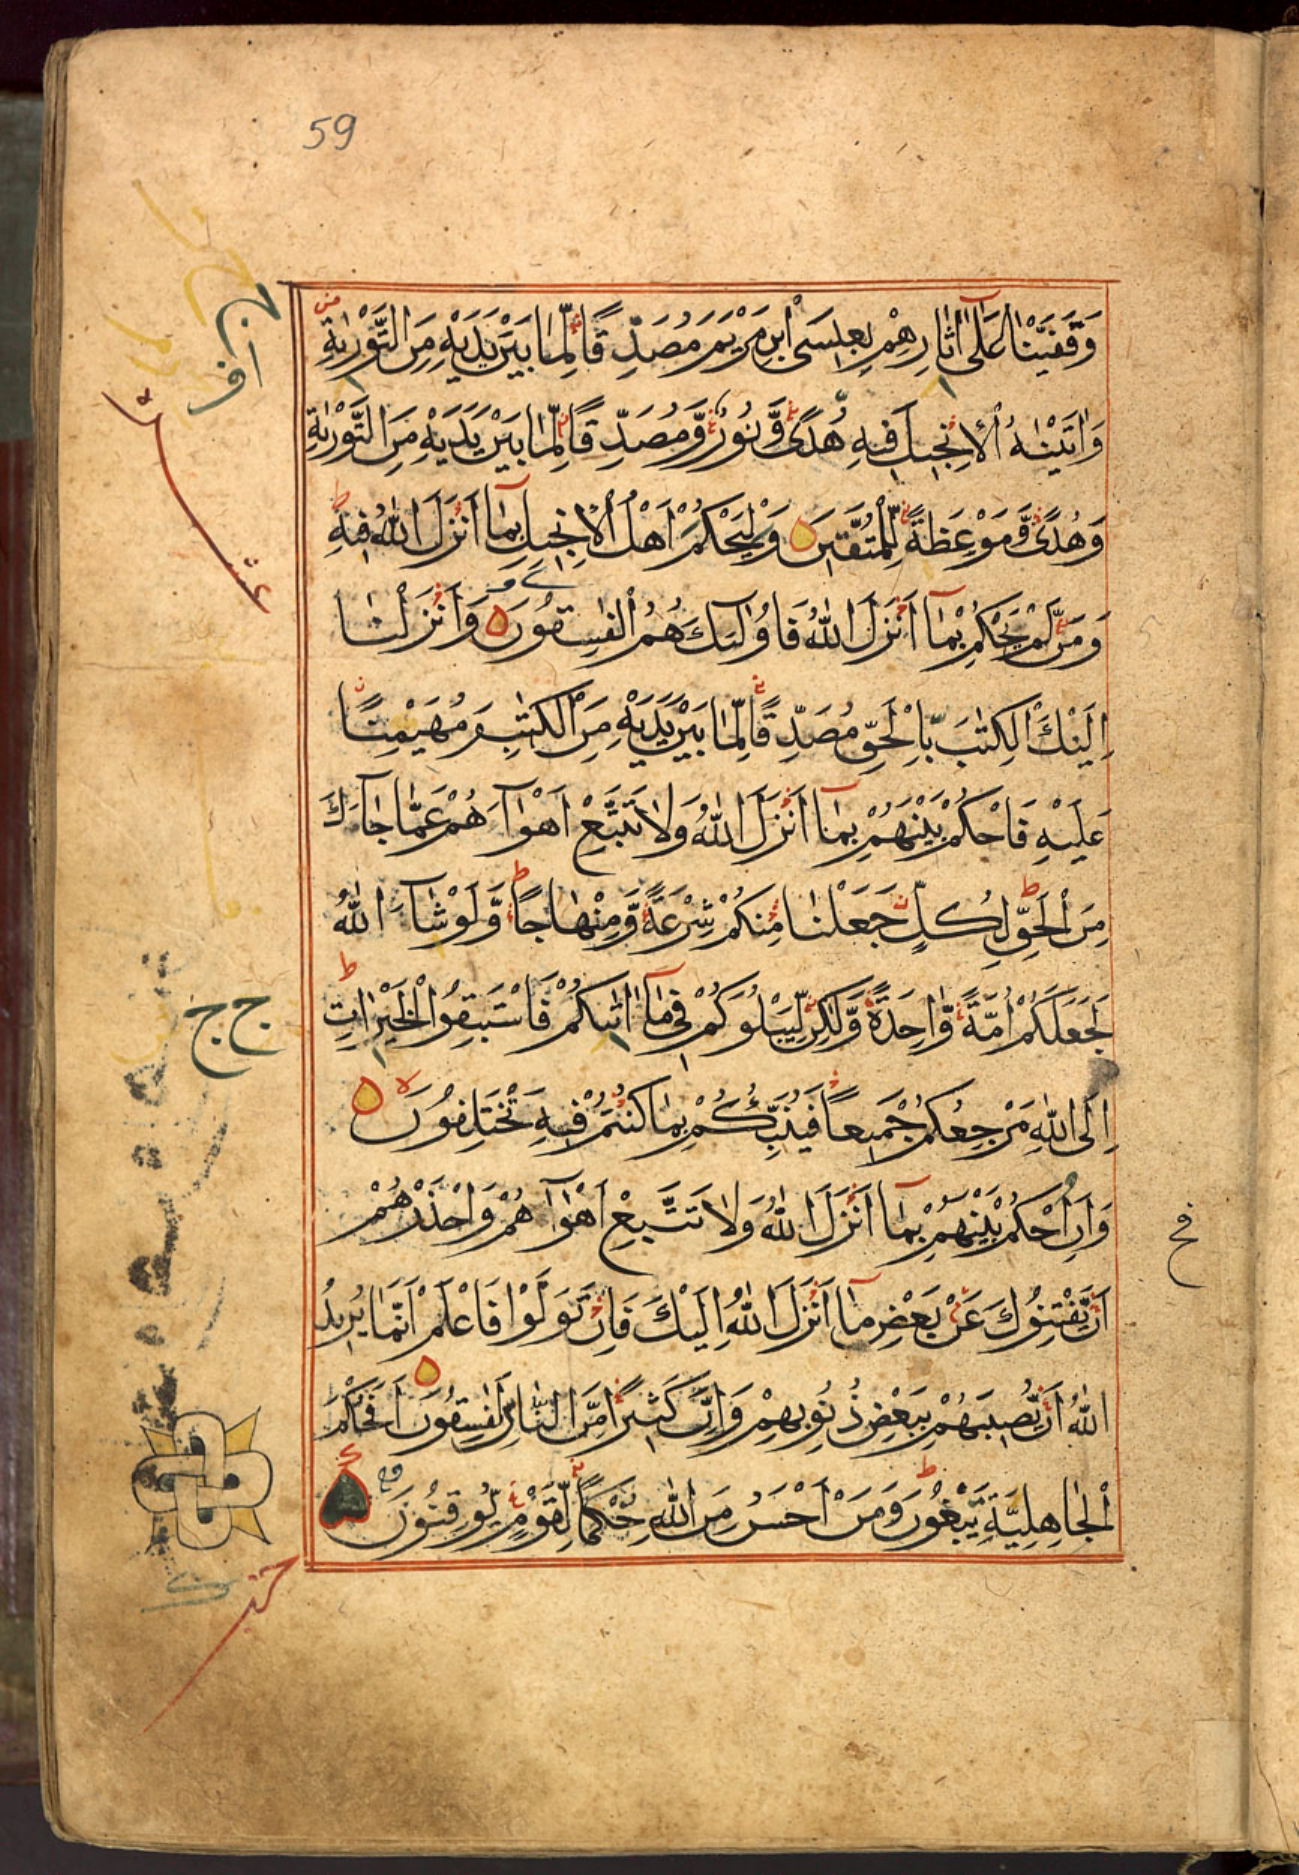 59
وَقَفَّيْنَا عَلَىٰ اٰثَارِهِمْ بِعِيسَى ابْنِ مَرْيَمَ مُصَدِّقًا لِّمَا بَيْنَ يَدَيْهِ مِنَ التَّوْرٰيةِ
وَاٰتَيْنٰهُ الْاِنْجِيلَ فِيهِ هُدًى وَّنُورٌ وَّمُصَدِّقًا لِّمَا بَيْنَ يَدَيْهِ مِنَ التَّوْرٰيةِ
وَهُدًى وَّمَوْعِظَةً لِّلْمُتَّقِينَ وَلْيَحْكُمْ اَهْلُ الْاِنْجِيلِ بِمَا اَنْزَلَ اللّٰهُ فِيهِ
وَمَنْ لَّمْ يَحْكُمْ بِمَا اَنْزَلَ اللّٰهُ فَاُولٰئِكَ هُمُ الْفٰسِقُونَ وَاَنْزَلْنَا
اِلَيْكَ الْكِتٰبَ بِالْحَقِّ مُصَدِّقًا لِّمَا بَيْنَ يَدَيْهِ مِنَ الْكِتٰبِ وَمُهَيْمِنًا
عَلَيْهِ فَاحْكُمْ بَيْنَهُمْ بِمَا اَنْزَلَ اللّٰهُ وَلَا تَتَّبِعْ اَهْوَآءَهُمْ عَمَّا جَآءَكَ
مِنَ الْحَقِّ لِكُلٍّ جَعَلْنَا مِنْكُمْ شِرْعَةً وَّمِنْهَاجًا وَّلَوْ شَآءَ اللّٰهُ
لَجَعَلَكُمْ اُمَّةً وَّاحِدَةً وَّلٰكِنْ لِّيَبْلُوَكُمْ فِي مَا اٰتٰيكُمْ فَاسْتَبِقُوا الْخَيْرَاتِ
اِلَى اللّٰهِ مَرْجِعُكُمْ جَمِيعًا فَيُنَبِّئُكُمْ بِمَا كُنْتُمْ فِيهِ تَخْتَلِفُونَ
وَاَنِ احْكُمْ بَيْنَهُمْ بِمَا اَنْزَلَ اللّٰهُ وَلَا تَتَّبِعْ اَهْوَآءَهُمْ وَاحْذَرْهُمْ
اَنْ يَّفْتِنُوكَ عَنْ بَعْضِ مَا اَنْزَلَ اللّٰهُ اِلَيْكَ فَاِنْ تَوَلَّوْا فَاعْلَمْ اَنَّمَا يُرِيدُ
اللّٰهُ اَنْ يُّصِيبَهُمْ بِبَعْضِ ذُنُوبِهِمْ وَاِنَّ كَثِيرًا مِّنَ النَّاسِ لَفٰسِقُونَ اَفَحُكْمَ
الْجَاهِلِيَّةِ يَبْغُونَ وَمَنْ اَحْسَنُ مِنَ اللّٰهِ حُكْمًا لِّقَوْمٍ يُّوقِنُونَ